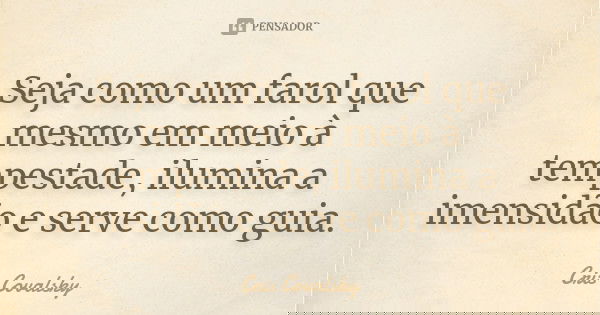 PENSADOR
Seja como um farol que
mesmo em meio à
tempestade, ilumina a
imensidão e serve como guia.
Cris Covalsky